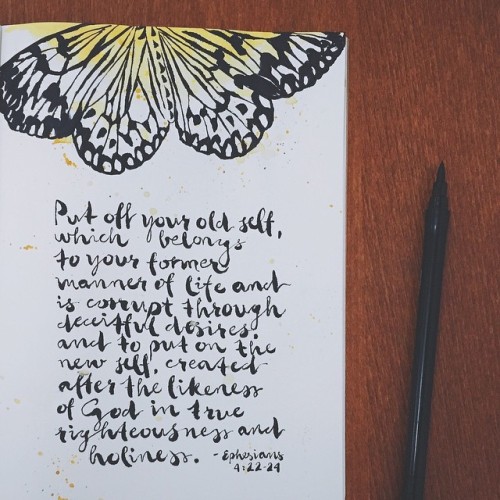 Put off your old self,
which belongs
to your former
manner of life and
is corrupt through
deceitful desires,
and to put on the
new self, created
after the likeness
of God in true
righteousness and
holiness. - Ephesians
4:22-24